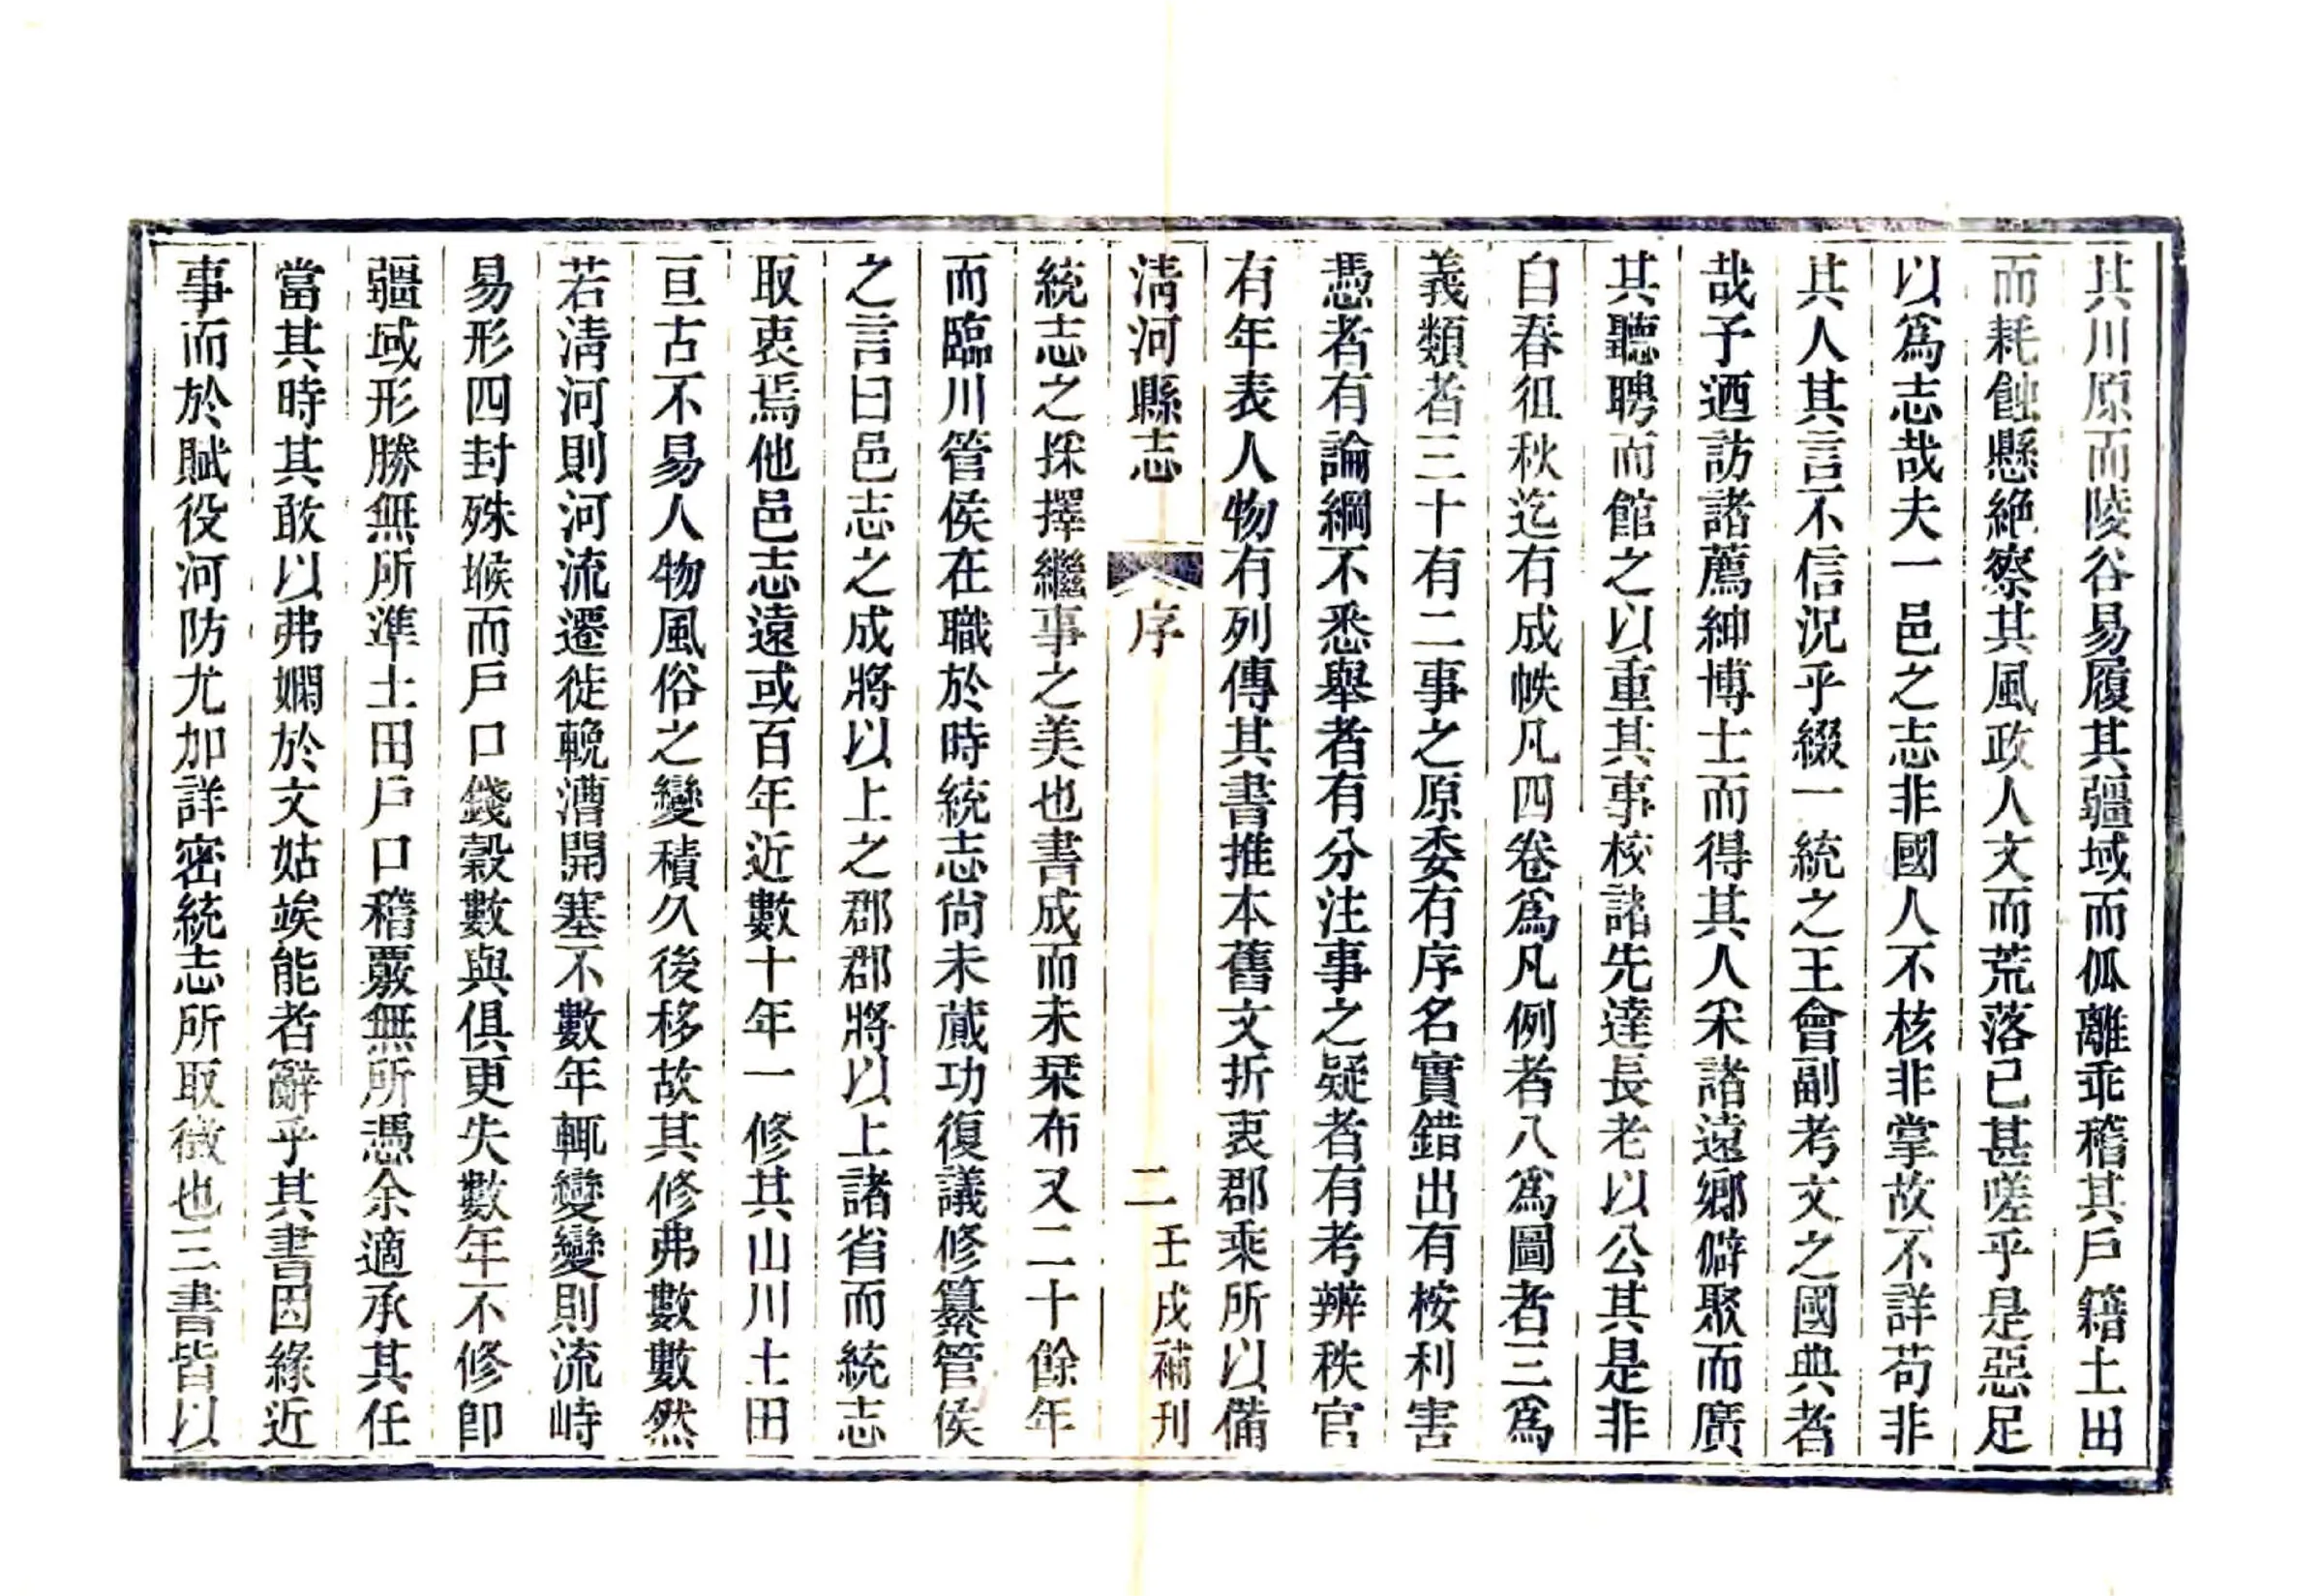 其川原而陵谷易履其疆域而佤離乖稽其戶籍土田
而耗蝕懸絕察其風政人文而荒落已甚嗟乎是惡足
以爲志哉夫一邑之志非國人不核非掌故不詳苟非
其人其言不信況乎綴一統之王會副考文之國典者
哉予迺訪諸薦紳博士而得其人采諸遠鄉僻聚而廣
其聽聘而館之以重其事核諸先達長老以公其是非
自春徂秋迄有成帙凡四卷爲凡例者八爲圖者三爲
義類者三十有二事之原委有序名實錯出有桉利害
憑者有論綱不悉舉者有分注事之疑者有考辨秩官
有年表人物有列傳其書推本舊文折衷郡乘所以備
清河縣志 序 二 壬戌補刊
統志之採擇繼事之美也書成而未栞布又二十餘年
而臨川管侯在職於時統志尙未蕆功復議修纂管侯
之言曰邑志之成將以上之郡郡將以上諸省而統志
取衷焉他邑志遠或百年近數十年一修其山川土田
亘古不易人物風俗之變積久後移故其修弗數數然
若淸河則河流遷徙輓漕開塞不數年輒變變則流峙
易形四封殊堠而戶口錢穀數與俱更失數年不修卽
疆域形勝無所準土田戶口稽覈無所憑余適承其任
當其時其敢以弗嫻於文姑竢能者辭乎其書因緣近
事而於賦役河防尤加詳密統志所取徵也三書皆以